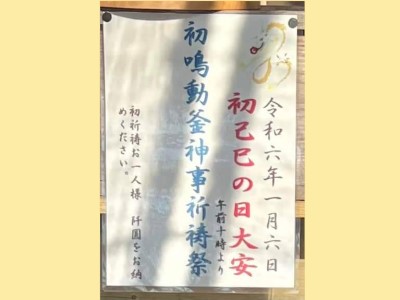 令和六年一月六日
初己巳の日大安
午前十時より
初鳴動釜神事祈祷祭
初祈祷お一人様 阡圓をお納
めください。